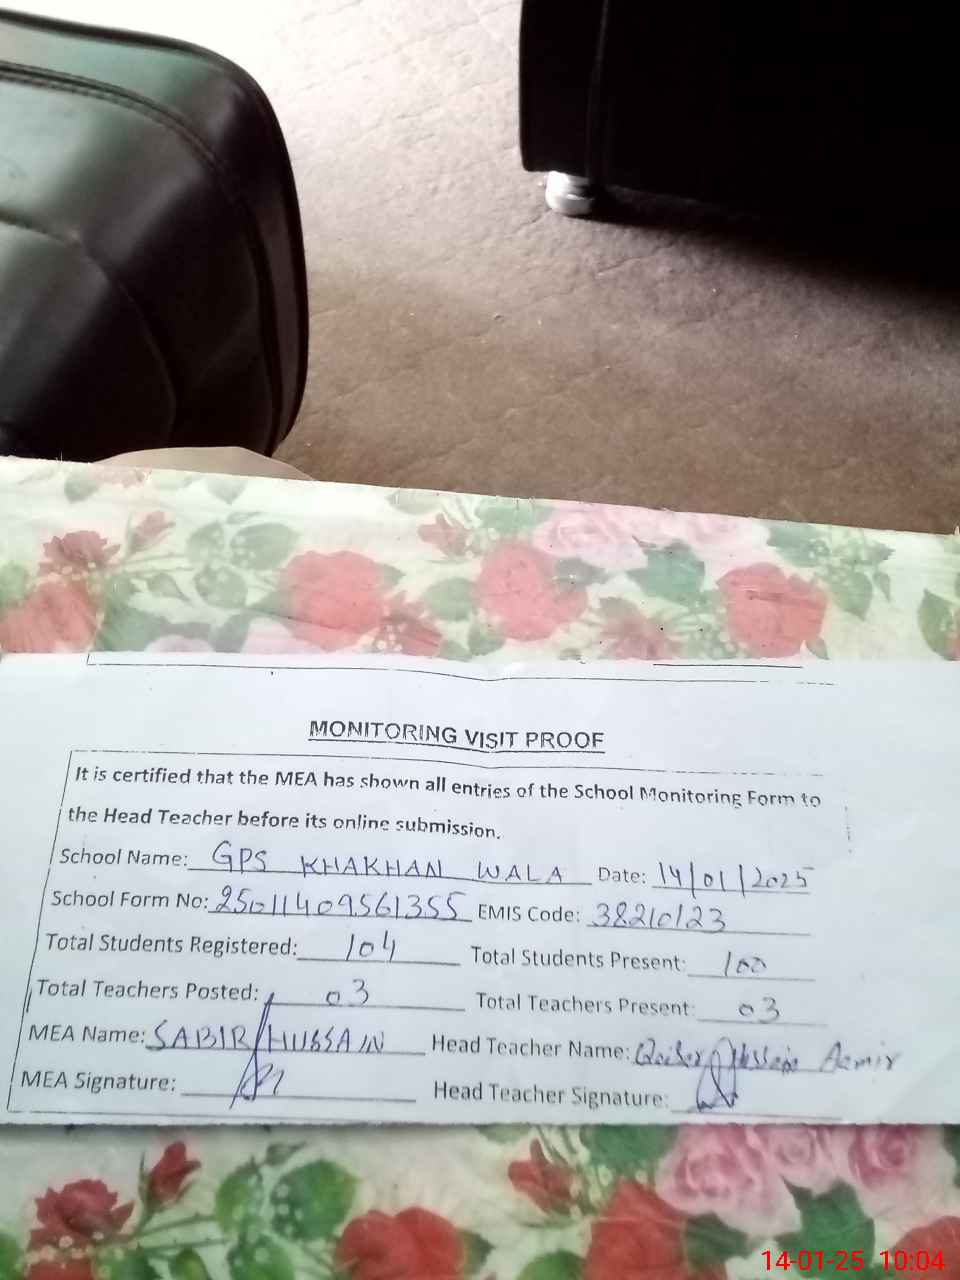 MONITORING VISIT PROOF
It is certified that the MEA has shown all entries of the School Monitoring Form to
the Head Teacher before its online submission.
School Name: GPS KHAKHAN WALA Date: 14/01/2025
School Form No: 25011409561355 EMIS Code: 38210123
Total Students Registered: 104 Total Students Present: 100
Total Teachers Posted: 03 Total Teachers Present: 03
MEA Name: SABIR HUSSAIN Head Teacher Name: Qaiser Hussain Aamir
MEA Signature: Head Teacher Signature:
14-01-25 10:04